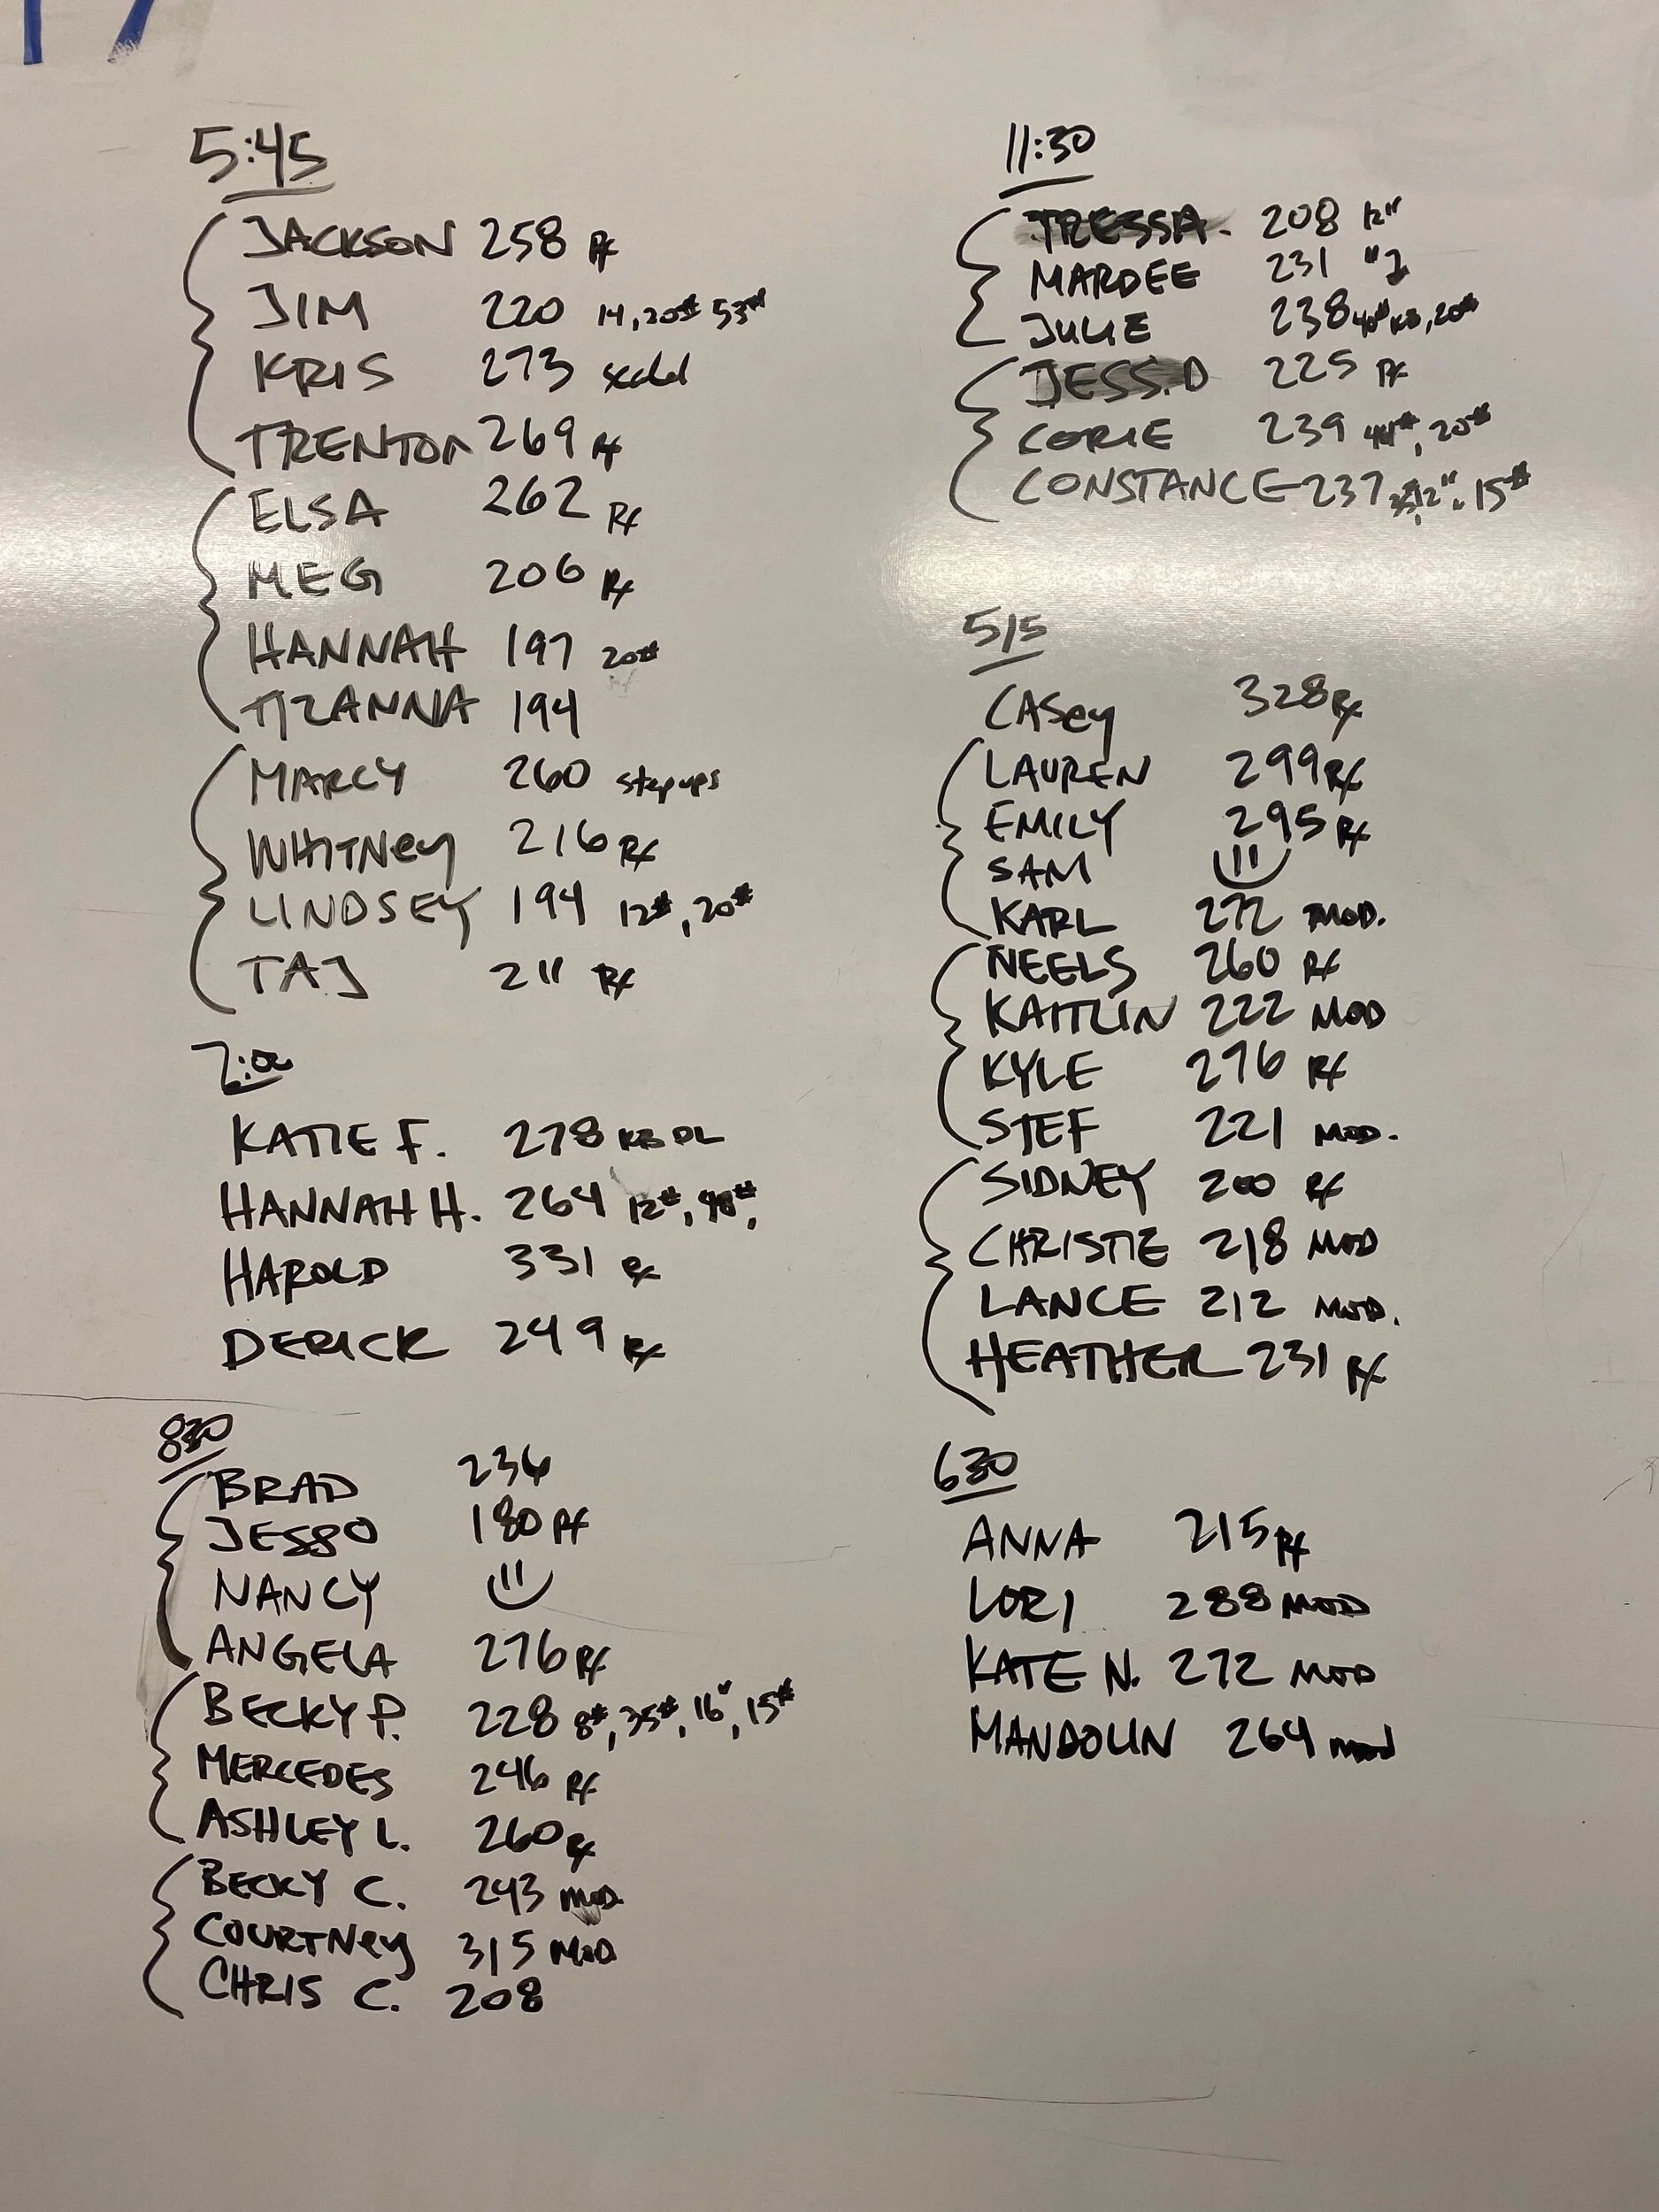 5:45
JACKSON 258 Rx
JIM 220 14, 20# 53#
KRIS 273 scaled
TRENTON 269 Rx
ELSA 262 Rx
MEG 206 Rx
HANNAH 197 20#
194
MARCY 260 step ups
WHITNey 216 Rx
LINDSEY 194 12#, 20#
TAJ 211 Rx
7:00
KATIE F. 278 KB DL
HANNAH H. 264 12#,
HAROLD 331 Rx
DERICK 249 Rx
830
BRAD 236
180 Rx
NANCY
ANGELA 276 Rx
BECKY P. 228 8#, 35#, 16", 15#
MERCEDES 246 Rx
ASHLEY L. 260 Rx
BECKY C. 243 MOD.
COURTNey 315 MOD
CHRIS C. 208
11:30
TRESSA. 208 12"
MARDEE 231
JULIE 238 40# KB, 20#
JESS.D 225 Rx
CORIE 239 44#, 20#
CONSTANCE 237 12" 15#
515
CASey 328 Rx
LAUREN 299 Rx
EMILY 295 Rx
SAM
KARL 272 MOD.
NEELS 260 Rx
KAITLIN 222 MOD
KYLE 276 Rx
STEF 221 MOD.
SIDNEY 200 Rx
CHRISTIE 218 MOD
LANCE 212 MOD.
HEATHER 231 Rx
630
ANNA 215 Rx
LORI 288 MOD
KATE N. 272 MOD
MANDOLIN 264 mod